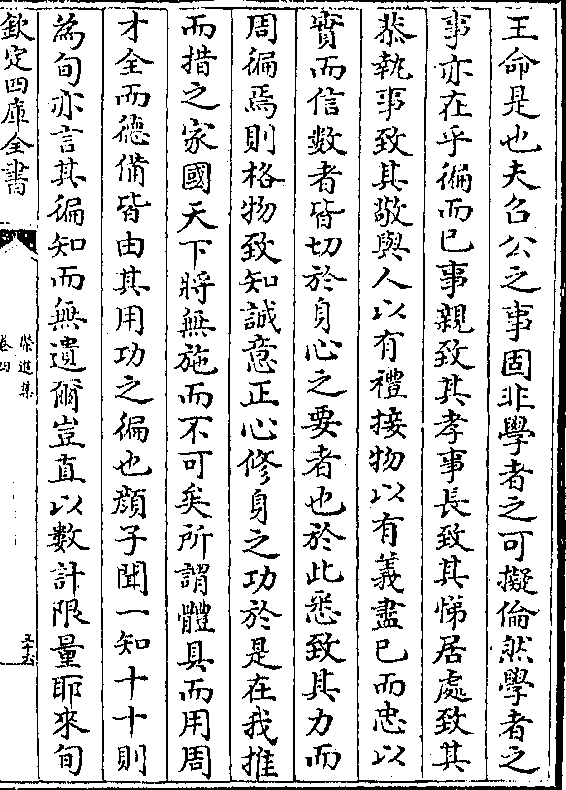 王命是也夫召公之事固非學者之可擬倫然學者之
事亦在乎徧而已事親致其孝事長致其悌居處致其
恭執事致其敬與人以有禮接物以有義盡已而忠以
實而信數者皆切於身心之要者也於此悉致其力而
周徧焉則格物致知誠意正心修身之功於是在我推
而措之家國天下將無施而不可矣所謂體具而用周
才全而德備皆由其用功之徧也顔子聞一知十十則
為旬亦言其徧知而無遺爾豈直以數計限量耶來旬
欽定四庫全書
榮進集
卷四